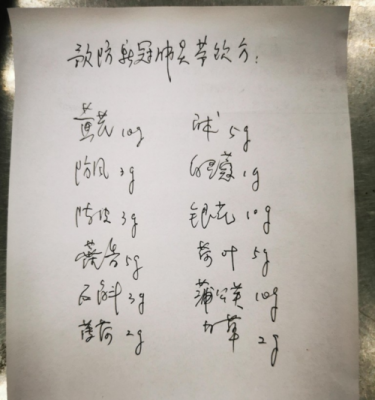 预防新冠肺炎茶饮方:
黄芪 10g 白术 5g
防风 3g 白蔻 1g
陈皮 3g 银花 10g
藿香 5g 荷叶 5g
石斛 3g 蒲公英 10g
薄荷 2g 甘草 2g